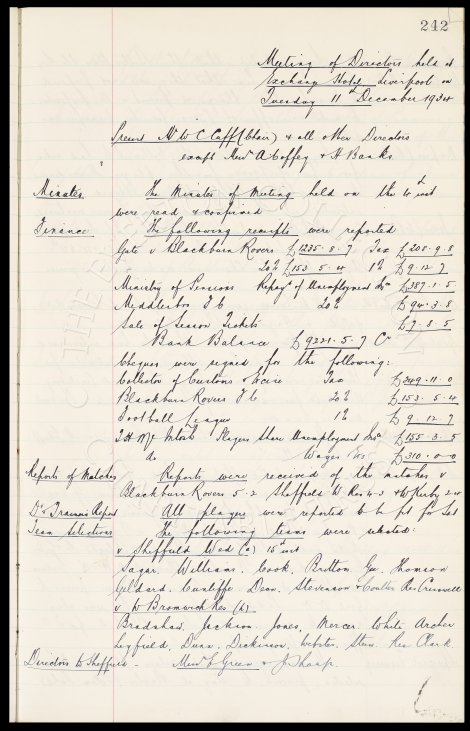 242
Meeting of Directors held at
Exchange Hotel Liverpool on
Tuesday 11th December 1934
Present Mr W C Cuff (Chair) & all other Directors
except Messrs A Coffey & H Banks.
Minutes. The Minutes of Meeting held on the 4th inst
were read & confirmed
Finance. The following receipts were reported
Gate v Blackburn Rovers £1235. 8. 7 Tax £208. 9. 8
20% £153. 5. 4 1% £9. 12. 7
Ministry of Pensions Repayt of Unemployment Inc £387. 1. 5
Middlesbro F C 20% £94. 3. 8
Sale of Season Tickets £7. 8. 5
Bank Balance £9221. 5. 7 Cr
Cheques were signed for the following:
Collector of Customs & Excise Tax £249. 11. 0
Blackburn Rovers F C 20% £153. 5. 4
Football League 1% £9. 12. 7
Players share Unemployment Ince £155. 3. 5
do Wages £310. 0. 0
Reports of Matches Reports were received of the matches v
Blackburn Rovers 5-2 Sheffield W Res 4-3
Dr & Trainers Report All players were reported to be fit for Sat
Team Selections The following teams were selected:
v Sheffield Wed (a) 15th inst
Sagar, Williams, Cook, Britton, Gee, Thomson
Geldard, Cunliffe, Dean, Stevenson & Coulter Res Cresswell
v W Bromwich Res (h)
Bradshaw, Jackson, Jones, Mercer, White, Archer
Leyfield, Dunn, Dickinson, Webster, Res Clark
Directors to Sheffield - Messrs E Green & J Sharp.